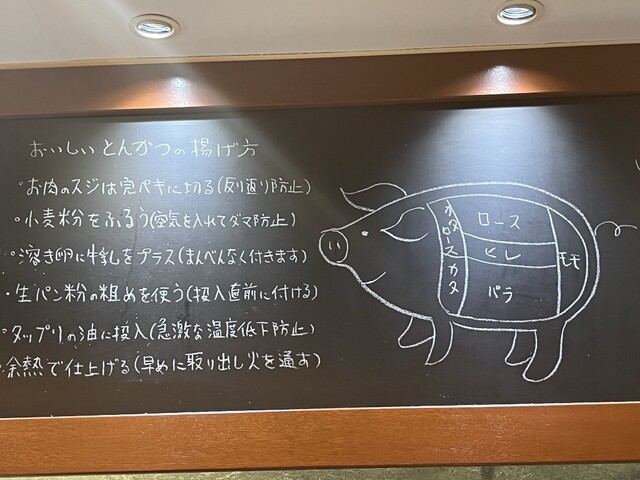 おいしいとんかつの揚げ方
・お肉のスジは完ペキに切る(反り返り防止)
・小麦粉をふるう(空気を入れてダマ防止)
・溶き卵に牛乳をプラス(まんべんなく付きます)
・生パン粉の粗めを使う(投入直前に付ける)
・タップリの油に投入(急激な温度低下防止)
・余熱で仕上げる(早めに取り出し火を通す)
カタロース
カタ
ロース
ヒレ
バラ
モモ